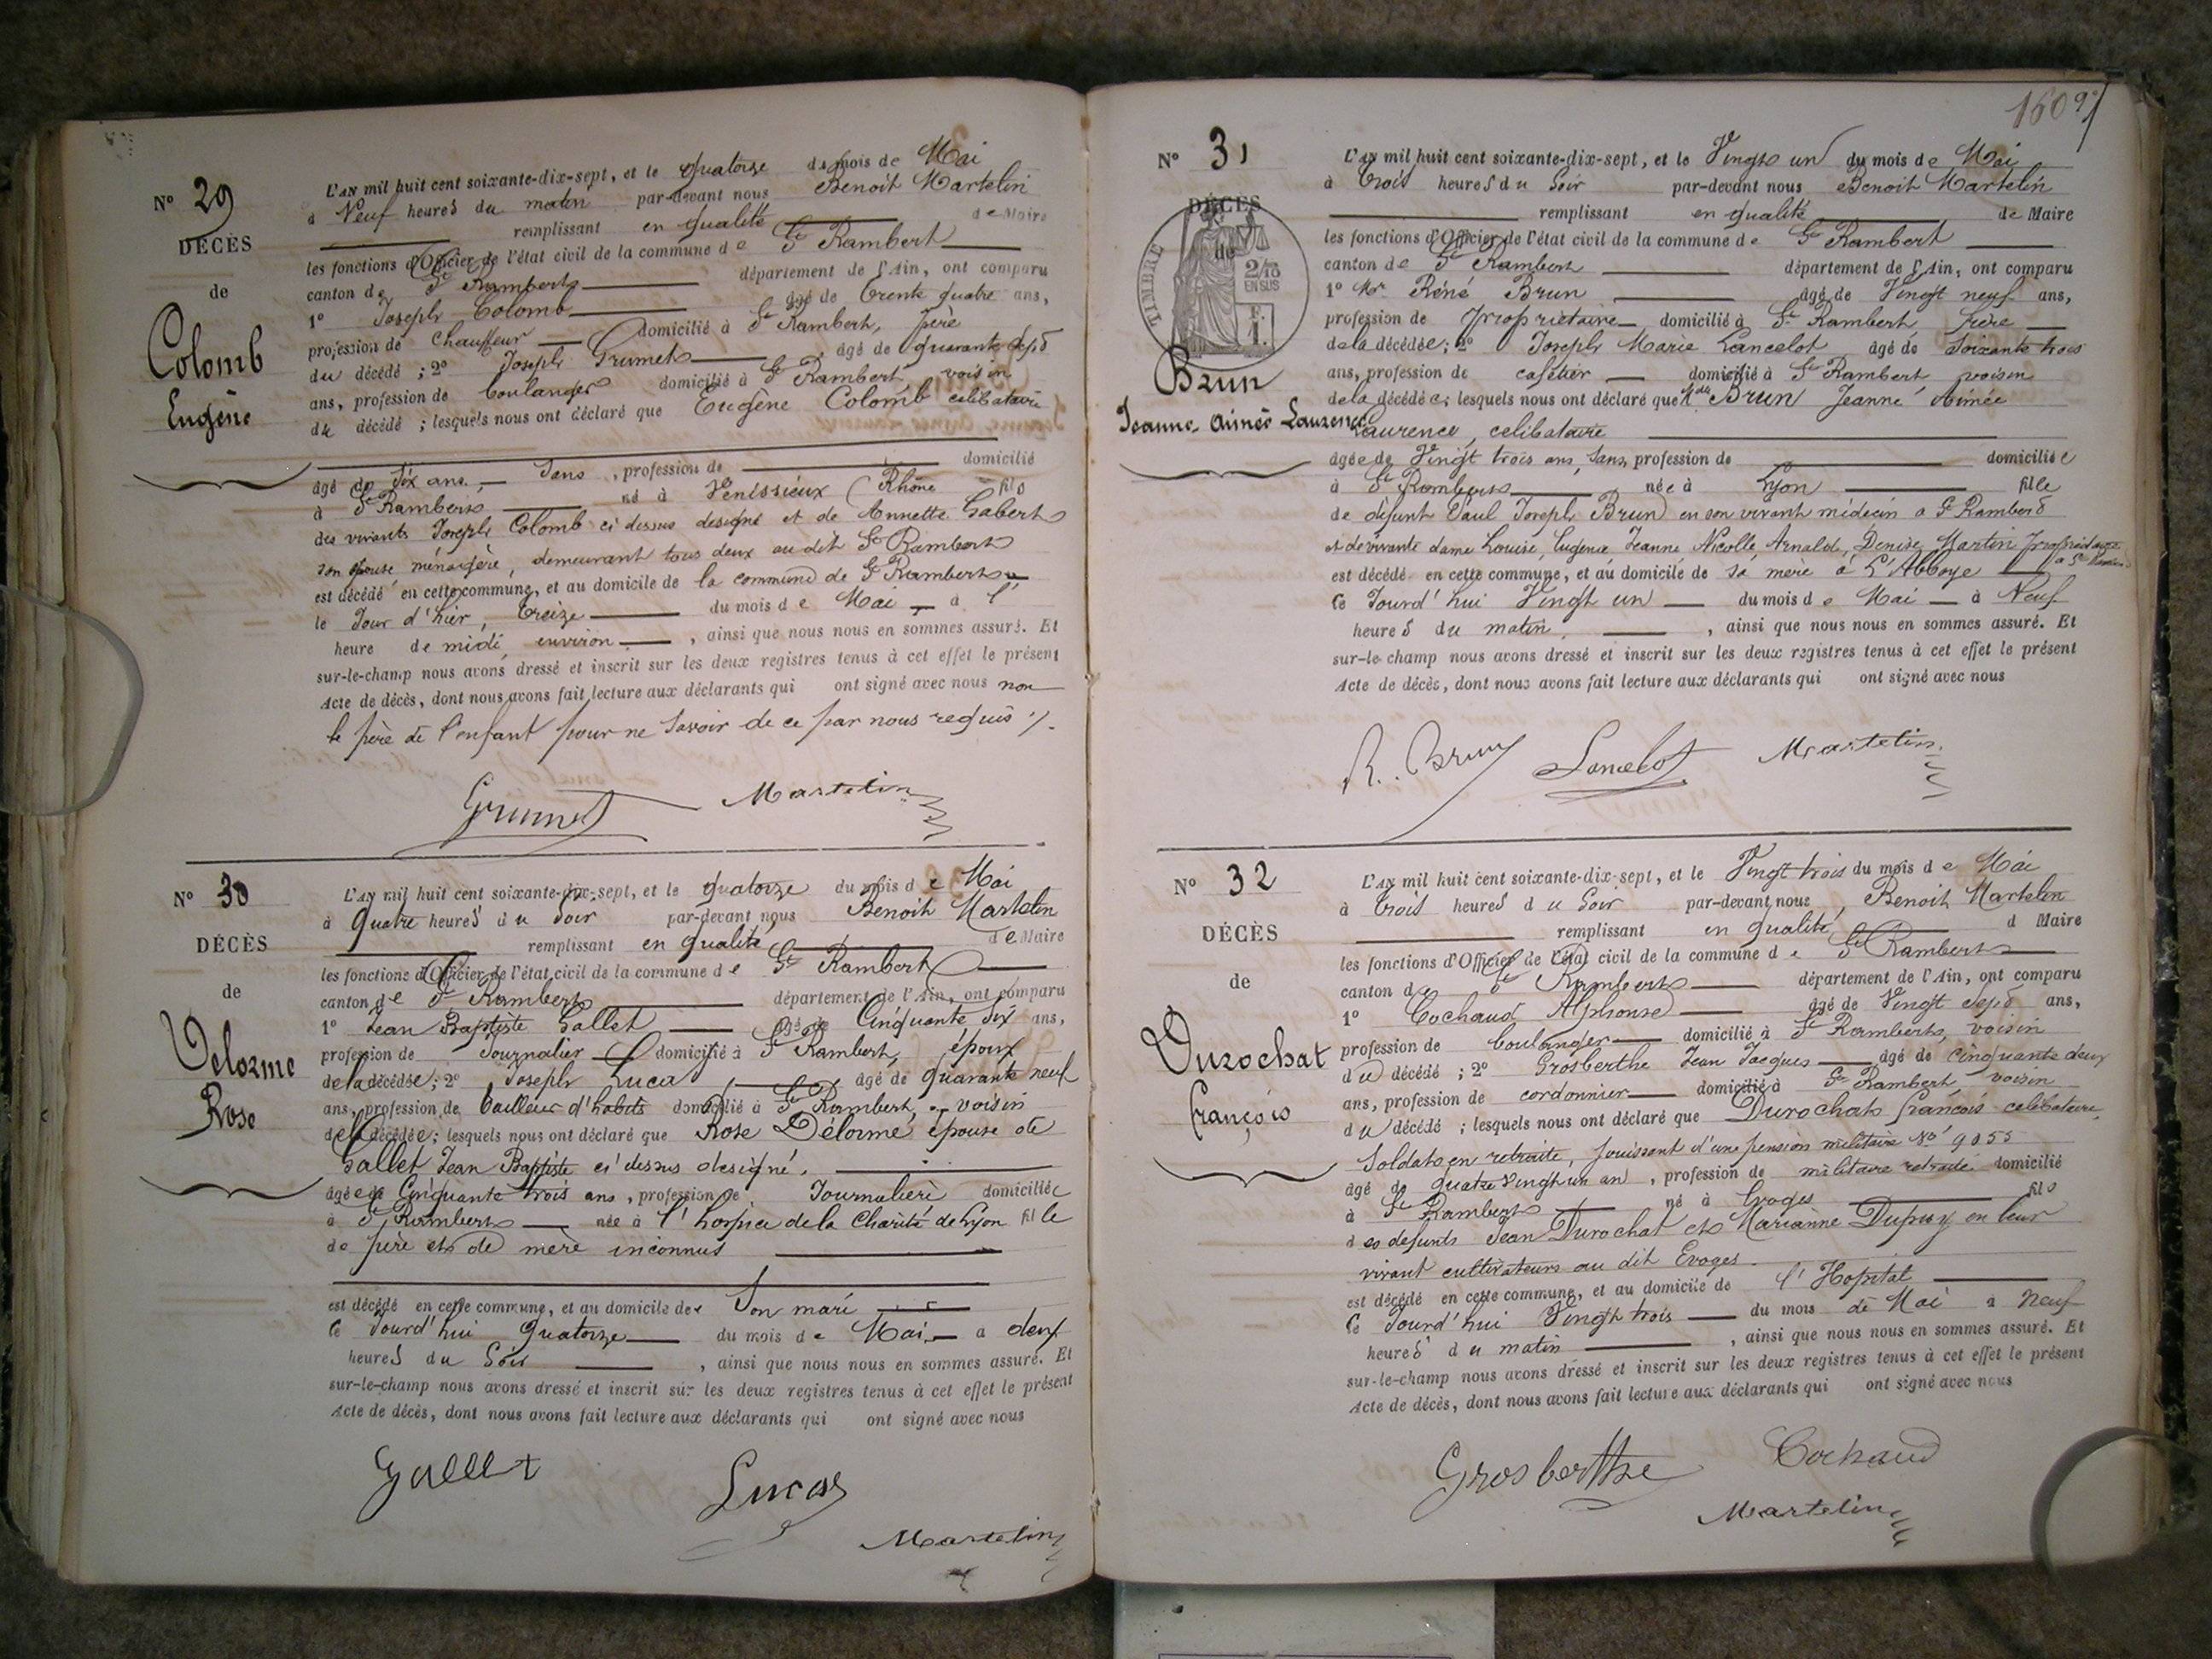 N° 29
DÉCÈS
de
Colomb
Eugène
L'AN mil huit cent soixante-dix-sept, et le quatorze du mois de Mai
à Neuf heures du matin par-devant nous Benoit Martelin
remplissant en qualité de Maire
les fonctions d'Officier de l'état civil de la commune de St Rambert
canton de St Rambert département de l'Ain, ont comparu
1° Joseph Colomb âgé de trente quatre ans,
profession de Chauffeur domicilié à St Rambert, père
du décédé ; 2° Joseph Grumet âgé de quarante sept
ans, profession de boulanger domicilié à St Rambert, voisin
du décédé ; lesquels nous ont déclaré que Eugène Colomb celibataire
âgé de Six ans, Sans, profession de domicilié
à St Rambert né à Venissieux (Rhône fils
des vivants Joseph Colomb ci dessus designé et de Annette Gabert
son épouse ménagère, demeurant tous deux au dit St Rambert
est décédé en cette commune, et au domicile de la commune de St Rambert
le Jour d'hier, treize du mois de Mai à l'
heure de midi environ, ainsi que nous nous en sommes assuré. Et
sur-le-champ nous avons dressé et inscrit sur les deux registres tenus à cet effet le présent
Acte de décès, dont nous avons fait lecture aux déclarants qui ont signé avec nous non
le père de l'enfant pour ne savoir de ce par nous requis ./.
Grumet Martelin
N° 30
DÉCÈS
de
Delorme
Rose
L'AN mil huit cent soixante-dix-sept, et le quatorze du mois de Mai
à Quatre heures du Soir par-devant nous Benoit Martelin
remplissant en qualité de Maire
les fonctions d'Officier de l'état civil de la commune de St Rambert
canton de St Rambert département de l'Ain, ont comparu
1° Jean Baptiste Gallet âgé de Cinquante Six ans,
profession de Journalier domicilié à St Rambert, époux
de la décédée ; 2° Joseph Lucas âgé de quarante neuf
ans, profession de tailleur d'habits domicilié à St Rambert, voisin
de la décédée ; lesquels nous ont déclaré que Rose Délorme épouse de
Gallet Jean Baptiste ci dessus designé.
âgée de Cinquante trois ans, profession de Journalière domiciliée
à St Rambert née à l'hospice de la Charité de Lyon fille
de père et de mère inconnus
est décédé en cette commune, et au domicile de Son mari
ce Jourd'hui Quatorze du mois de Mai à deux
heures du Soir, ainsi que nous nous en sommes assuré. Et
sur-le-champ nous avons dressé et inscrit sur les deux registres tenus à cet effet le présent
Acte de décès, dont nous avons fait lecture aux déclarants qui ont signé avec nous
Gallet Lucas
Martelin
160
N° 31
DÉCÈS
de
TIMBRE
2/10
EN SUS
Brun
Jeanne Aimée Laurence
L'AN mil huit cent soixante-dix-sept, et le Vingt un du mois de Mai
à trois heures du Soir par-devant nous Benoit Martelin
remplissant en qualité de Maire
les fonctions d'Officier de l'état civil de la commune de St Rambert
canton de St Rambert département de l'Ain, ont comparu
1° Mr Réné Brun âgé de Vingt neuf ans,
profession de propriétaire domicilié à St Rambert frère
de la décédée ; 2° Joseph Marie Lancelot âgé de Soixante trois
ans, profession de cafetier domicilié à St Rambert voisin
de la décédée ; lesquels nous ont déclaré que Mlle Brun Jeanne Aimée
Laurence, celibataire
âgée de Vingt trois ans, Sans, profession de domiciliée
à St Rambert née à Lyon fille
de défunt Paul Joseph Brun en son vivant médecin à St Rambert
et de vivante dame Louise, Eugenie Jeanne Nicolle, Arnalde, Denise, Martin propriétaire
est décédé en cette commune, et au domicile de sa mère à L'Abbaye
ce Jourd'hui Vingt un du mois de Mai à Neuf
heures du matin, ainsi que nous nous en sommes assuré. Et
sur-le-champ nous avons dressé et inscrit sur les deux registres tenus à cet effet le présent
Acte de décès, dont nous avons fait lecture aux déclarants qui ont signé avec nous
R. Brun Lancelot Martelin
N° 32
DÉCÈS
de
Durochat
françois
L'AN mil huit cent soixante-dix-sept, et le Vingt trois du mois de Mai
à trois heures du Soir par-devant nous Benoit Martelin
remplissant en qualité d Maire
les fonctions d'Officier de l'état civil de la commune de St Rambert
canton de St Rambert département de l'Ain, ont comparu
1° Cochaud Alphonse âgé de Vingt Sept ans,
profession de boulanger domicilié à St Rambert, voisin
du décédé ; 2° Grosberthe Jean Jacques âgé de cinquante deux
ans, profession de cordonnier domicilié à St Rambert voisin
du décédé ; lesquels nous ont déclaré que Durochat françois celibataire
Soldat en retraite, jouissant d'une pension militaire No 9055
âgé de quatre Vingt un an, profession de militaire retraité domicilié
à St Rambert né à Evoges fils
des defunts Jean Durochat et Marianne Dupuy en leur
vivant cultivateurs au dit Evoges
est décédé en cette commune, et au domicile de l'Hopital
ce Jourd'hui Vingt trois du mois de Mai à neuf
heures du matin, ainsi que nous nous en sommes assuré. Et
sur-le-champ nous avons dressé et inscrit sur les deux registres tenus à cet effet le présent
Acte de décès, dont nous avons fait lecture aux déclarants qui ont signé avec nous
Grosberthe Cochaud
Martelin